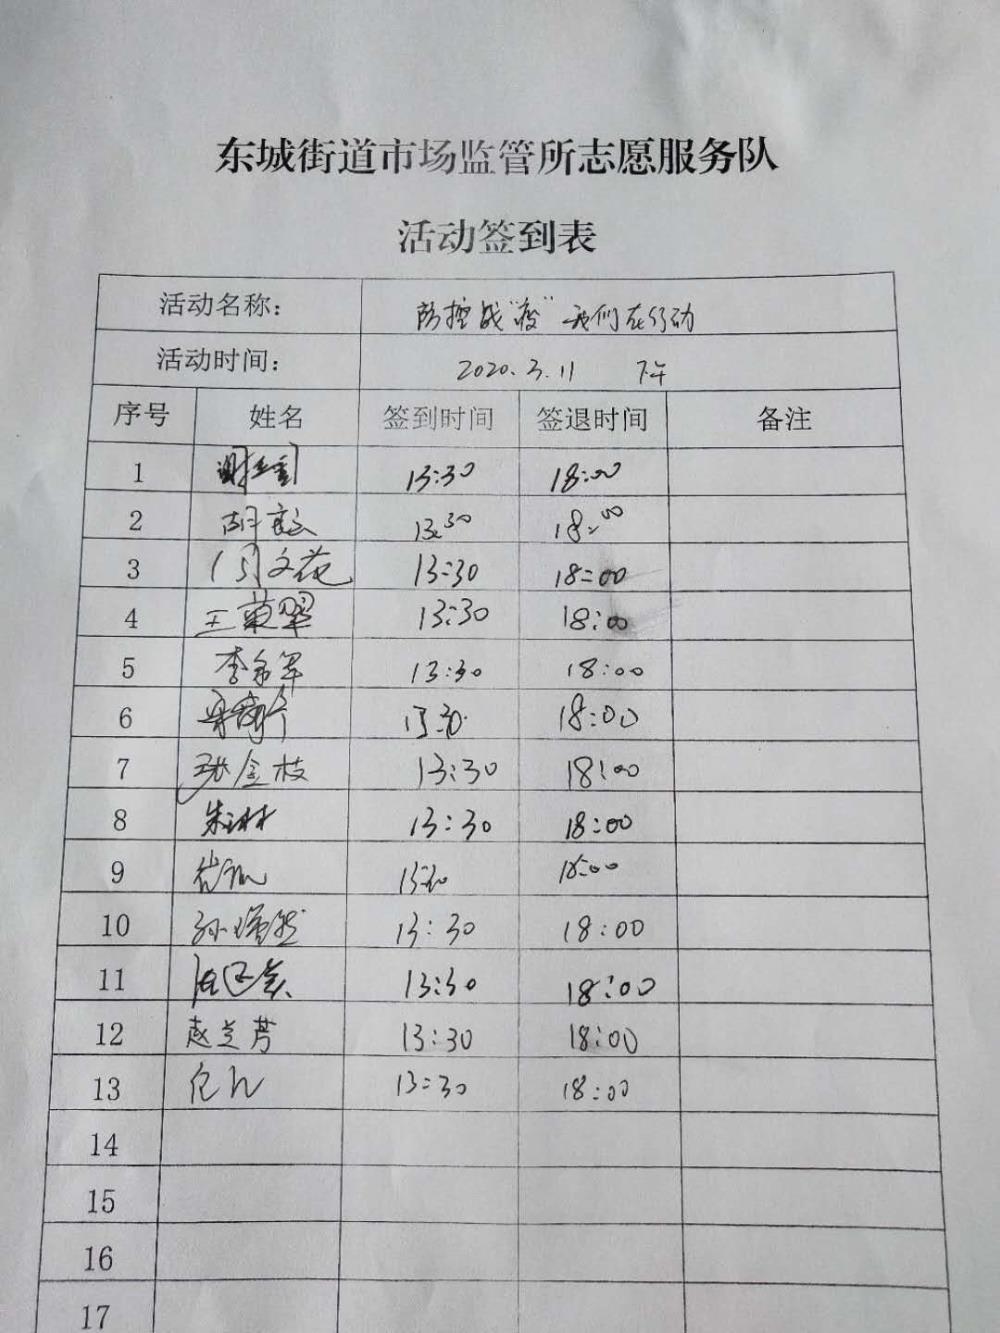 东城街道市场监管所志愿服务队
活动签到表
活动名称： 防控战“疫” 我们在行动
活动时间： 2020.3.11 下午
序号 姓名 签到时间 签退时间 备注
1 13:30 18:00
2 胡 13:30 18:00
3 闫文花 13:30 18:00
4 王菊翠 13:30 18:00
5 李希军 13:30 18:00
6 13:30 18:00
7 张金枝 13:30 18:00
8 朱 13:30 18:00
9 13:30 18:00
10 孙 13:30 18:00
11 13:30 18:00
12 赵兰芳 13:30 18:00
13 13:30 18:00
14
15
16
17